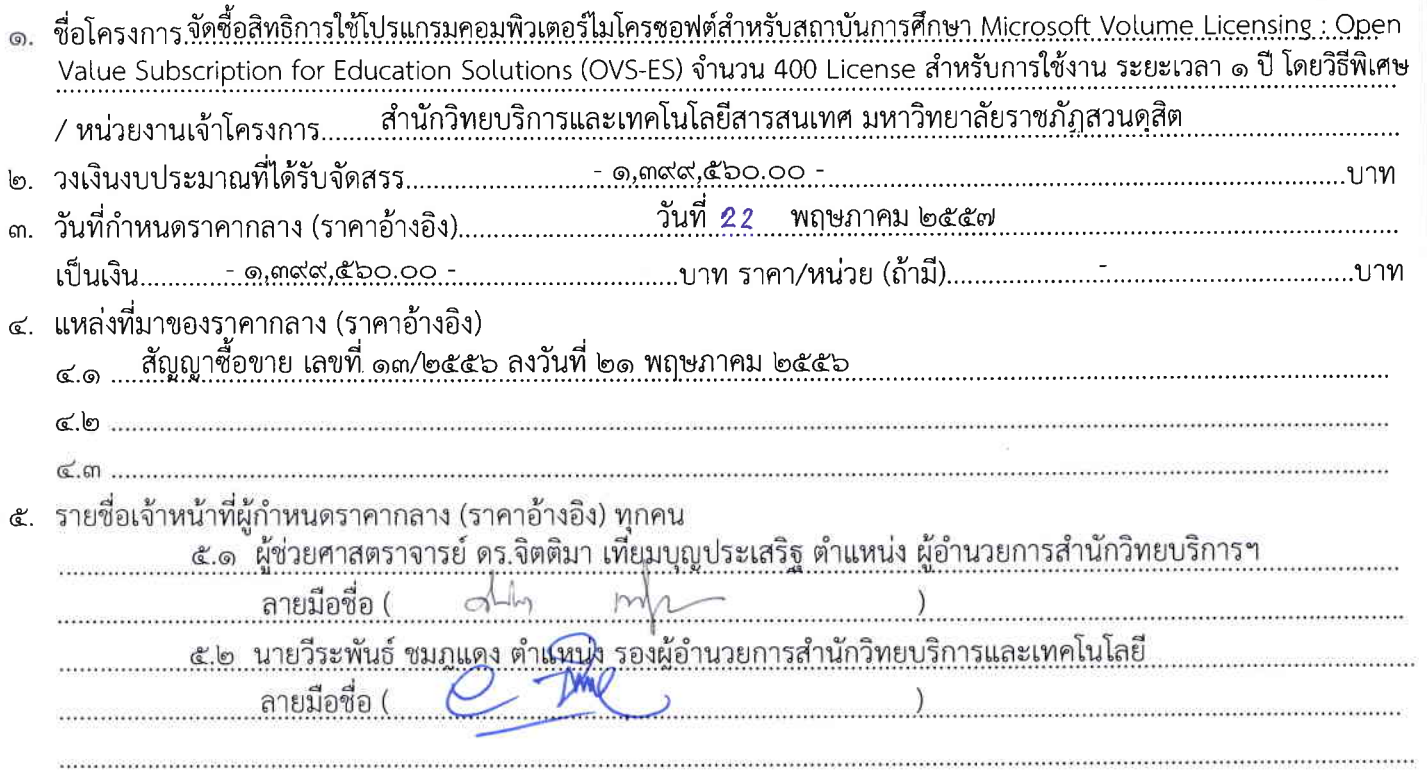 ๑. ชื่อโครงการ จัดซื้อสิทธิการใช้โปรแกรมคอมพิวเตอร์ไมโครซอฟต์สำหรับสถาบันการศึกษา Microsoft Volume Licensing : Open
Value Subscription for Education Solutions (OVS-ES) จำนวน 400 License สำหรับการใช้งาน ระยะเวลา ๑ ปี โดยวิธีพิเศษ
/ หน่วยงานเจ้าโครงการ........สำนักวิทยบริการและเทคโนโลยีสารสนเทศ มหาวิทยาลัยราชภัฏสวนดุสิต
๒. วงเงินงบประมาณที่ได้รับจัดสรร........- ๑,๓๙๙,๕๖๐.๐๐ -........บาท
๓. วันที่กำหนดราคากลาง (ราคาอ้างอิง)........วันที่ 22 พฤษภาคม ๒๕๕๗
เป็นเงิน........- ๑,๓๙๙,๕๖๐.๐๐ -........บาท ราคา/หน่วย (ถ้ามี)........-........บาท
๔. แหล่งที่มาของราคากลาง (ราคาอ้างอิง)
๔.๑ สัญญาซื้อขาย เลขที่ ๑๓/๒๕๕๖ ลงวันที่ ๒๑ พฤษภาคม ๒๕๕๖
๔.๒
๔.๓
๕. รายชื่อเจ้าหน้าที่ผู้กำหนดราคากลาง (ราคาอ้างอิง) ทุกคน
๕.๑ ผู้ช่วยศาสตราจารย์ ดร.จิตติมา เทียมบุญประเสริฐ ตำแหน่ง ผู้อำนวยการสำนักวิทยบริการฯ
ลายมือชื่อ ( )
๕.๒ นายวีระพันธ์ ชมภูแดง ตำแหน่ง รองผู้อำนวยการสำนักวิทยบริการและเทคโนโลยี
ลายมือชื่อ ( )